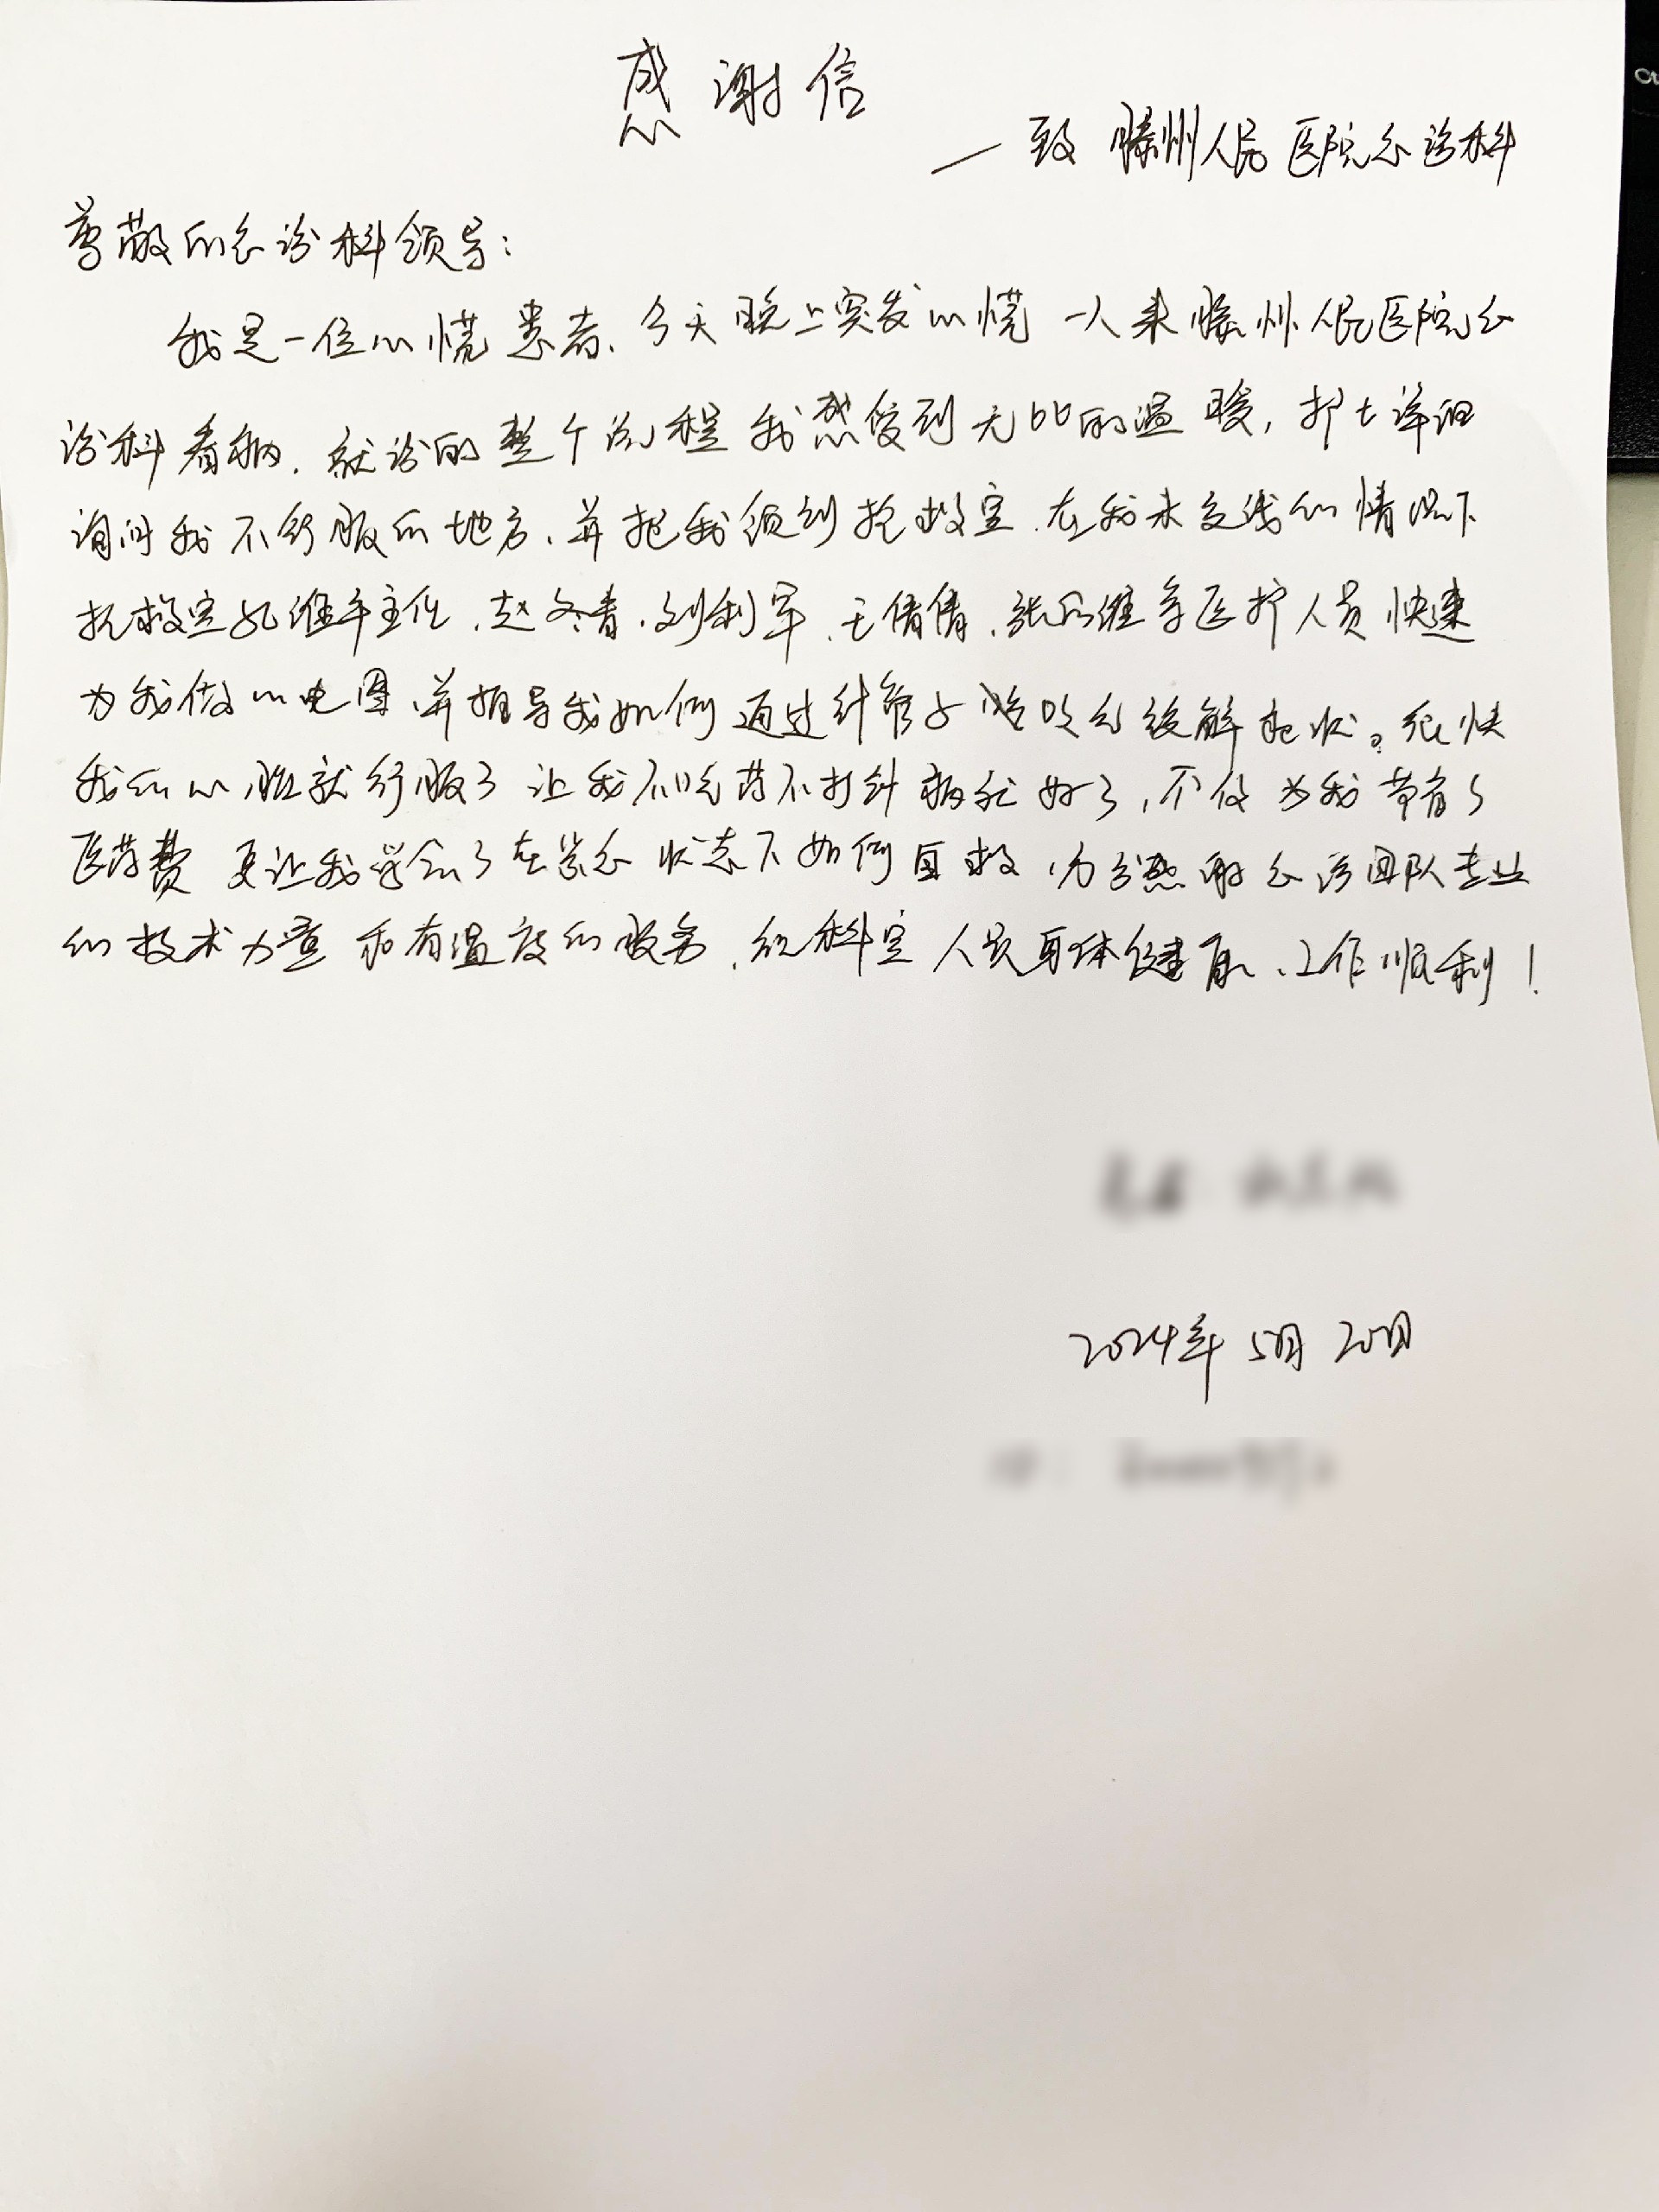 感谢信
一致 滕州人民医院急诊科
尊敬的急诊科领导：
我是一位心慌患者、今天晚上突发心慌 一人来滕州人民医院急
诊科看病. 就诊的整个流程我感受到无比的温暖, 护士详细
询问我不舒服的地方、并把我领到抢救室. 在我未交钱的情况下
抢救室孔维年主任、赵冬青、刘利军、王倩倩、张维等医护人员快速
为我做心电图、并指导我如何通过针管子吹气缓解症状。很快
我的心脏就舒服了 让我不吃药不打针病就好了, 不仅为我节省了
医药费 更让我学会了在紧急状态下如何自救、为了感谢急诊团队专业
的技术力量和有温度的服务、祝科室人员身体健康、工作顺利！
2024年5月20日